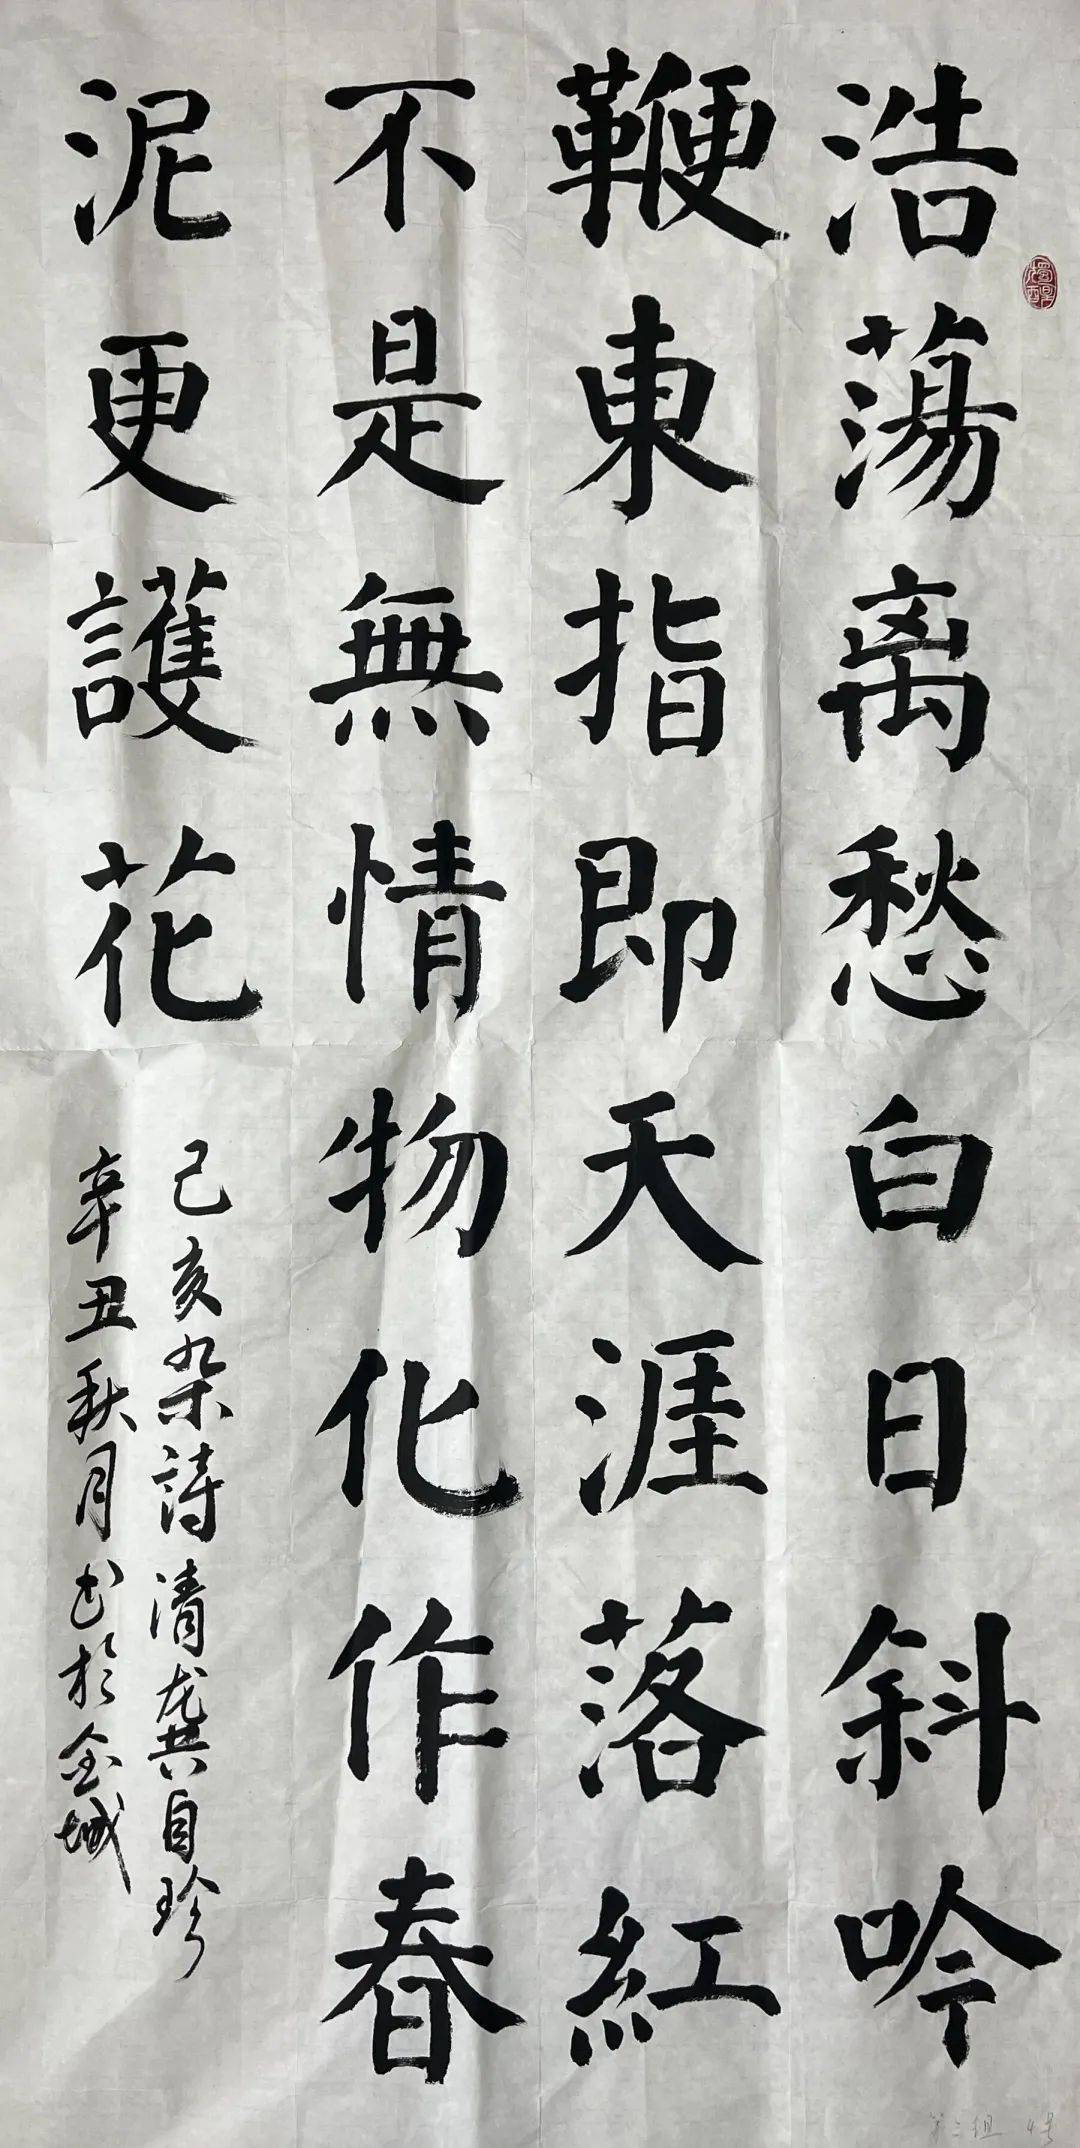 浩蕩离愁白日斜吟
鞭東指即天涯落紅
不是無情物化作春
泥更護花
己亥杂詩清龚自珍
辛丑秋月书於金城
第三组 4号